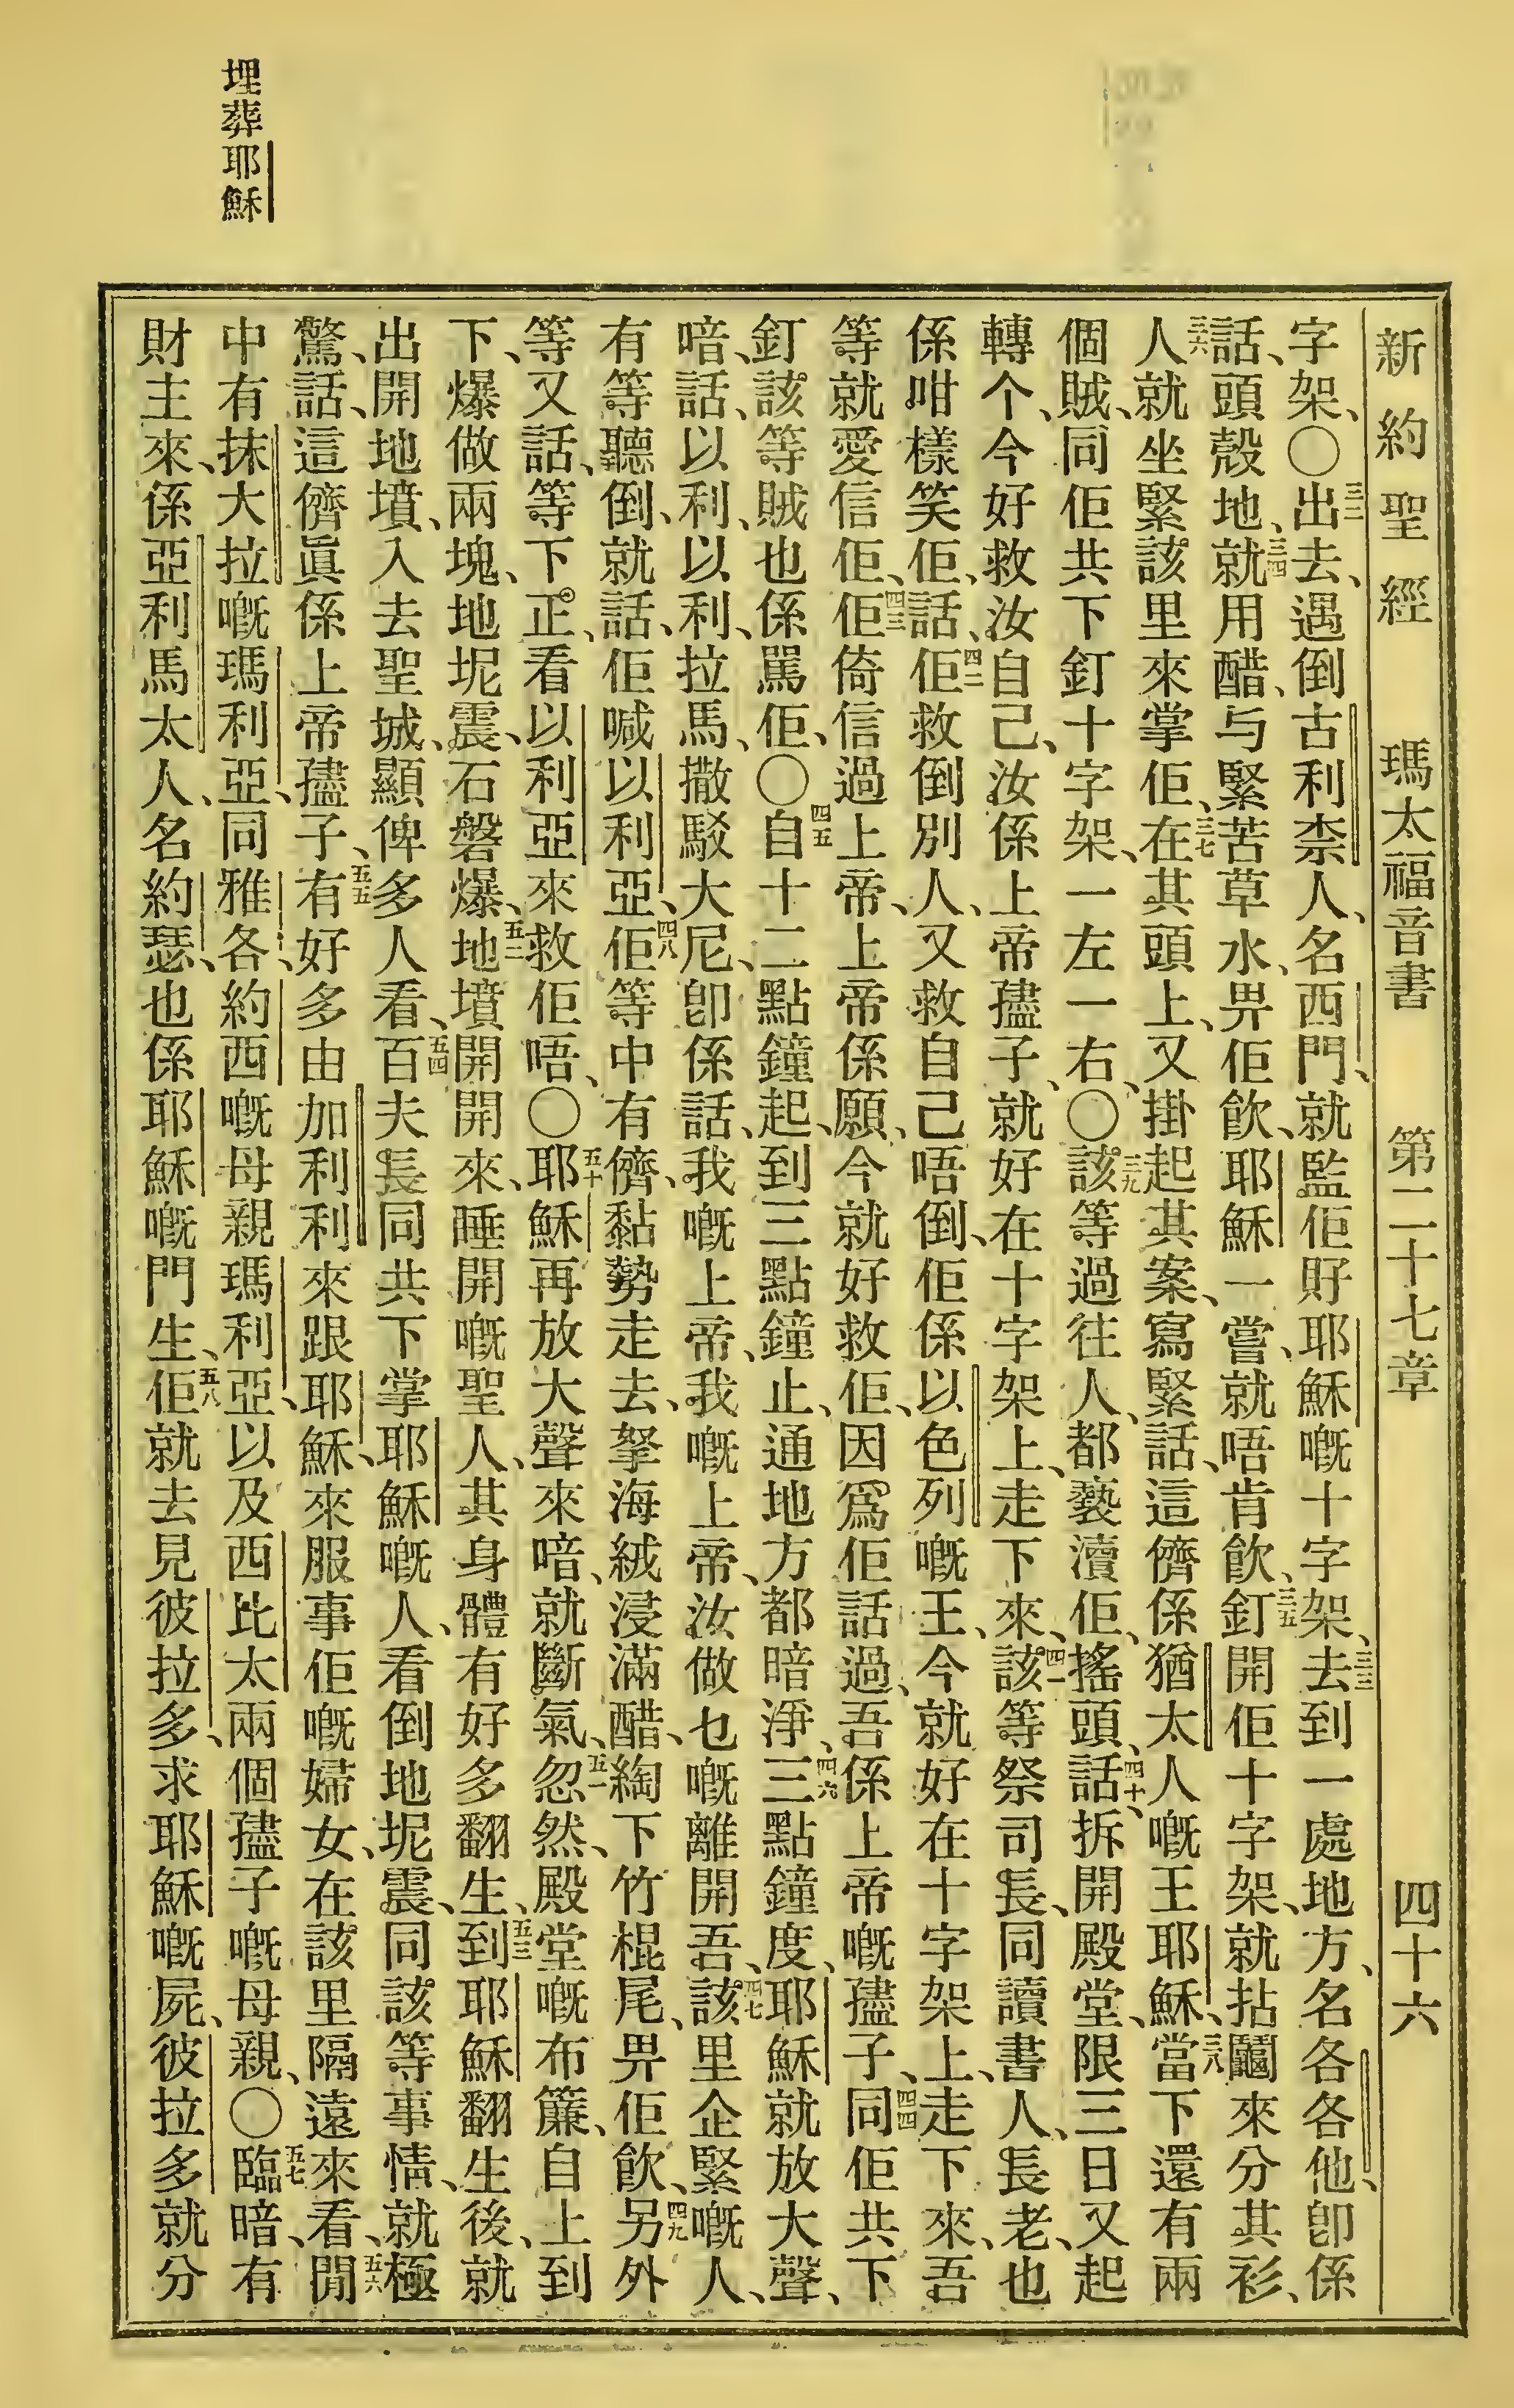 埋葬耶穌
新約聖經 瑪太福音書 第二十七章 四十六
字架、〇三二出去、遇倒古利柰人、名西門、就監佢𢬿耶穌嘅十字架、三三去到一處地方、名各各他、卽係
話、頭殼地、三四就用醋、与緊苦草水、畀佢飮、耶穌一嘗、就唔肯飮、三五釘開佢十字架、就拈鬮來分其衫、
三六人就坐緊該里來掌佢、三七在其頭上、又掛起其案、寫緊話、這儕係猶太人嘅王耶穌、三八當下還有兩
個賊、同佢共下釘十字架、一左一右、〇三九該等過往人、都褻瀆佢、搖頭、四十話、拆開殿堂、限三日又起
轉个、今好救汝自己、汝係上帝孻子、就好在十字架上、走下來、四一該等祭司長、同讀書人、長老、也
係咁樣笑佢、話、四二佢救倒別人、又救自己唔倒、佢係以色列嘅王、今就好在十字架上、走下來、吾
等就愛信佢、四三佢倚信過上帝、上帝係願、今就好救佢、因爲佢話過、吾係上帝嘅孻子、四四同佢共下
釘該等賊也係罵佢、〇四五自十二點鐘起、到三點鐘止、通地方都暗淨、四六三點鐘度、耶穌就放大聲、
喑、話、以利、以利、拉馬、撒駁大尼、卽係話、我嘅上帝、我嘅上帝、汝做乜嘅離開吾、四七該里企緊嘅人、
有等聽倒、就話、佢喊以利亞、四八佢等中有儕、黏勢走去、拏海絨浸滿醋、綯下竹棍尾、畀佢飮、四九另外
等又話、等下正、看以利亞來救佢唔、〇五十耶穌再放大聲來喑、就斷氣、五一忽然、殿堂嘅布簾、自上到
下、爆做兩塊、地坭震、石磐爆、五二地墳開開來、睡開嘅聖人、其身體有好多翻生、五三到耶穌翻生後、就
出開地墳、入去聖城、顯俾多人看、五四百夫長同共下掌耶穌嘅人、看倒地坭震、同該等事情、就極
驚、話、這儕眞係上帝孻子、五五有好多由加利利來跟耶穌、來服事佢嘅婦女、在該里隔遠來看、五六閒
中有抹大拉嘅瑪利亞、同雅各、約西嘅母親瑪利亞、以及西比太兩個孻子嘅母親、〇五七臨暗、有
財主來、係亞利馬太人、名約瑟、也係耶穌嘅門生、五八佢就去見彼拉多、求耶穌嘅屍、彼拉多就分